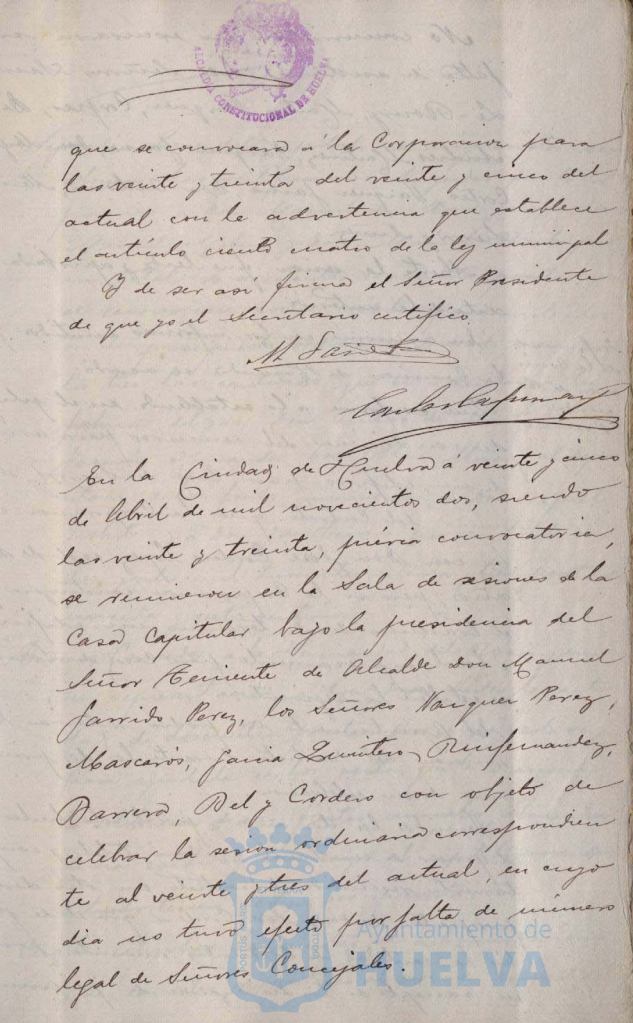 ALCALDÍA CONSTITUCIONAL DE HUELVA
que se convocará á la Corporacion para
las veinte y treinta del veinte y cinco del
actual con la advertencia que establece
el artículo ciento cuatro de la ley municipal
Y de ser así firma el Señor Presidente
de que yo el Secretario certifico.
En la Ciudad de Huelva á veinte y cinco
de Abril de mil novecientos dos, siendo
las veinte y treinta, prévia convocatoria,
se reunieron en la Sala de sesiones de la
Casa Capitular bajo la presidencia del
Señor Teniente de Alcalde Don Manuel
Garrido Perez, los Señores Vazquez Perez,
Mascarós, Garcia Quintero, Ruifernandez,
Barrera, Bel y Cordero con objeto de
celebrar la sesion ordinaria correspondien
te al veinte y tres del actual, en cuyo
dia no tuvo efecto por falta de número
legal de Señores Concejales.
Ayuntamiento de
HUELVA